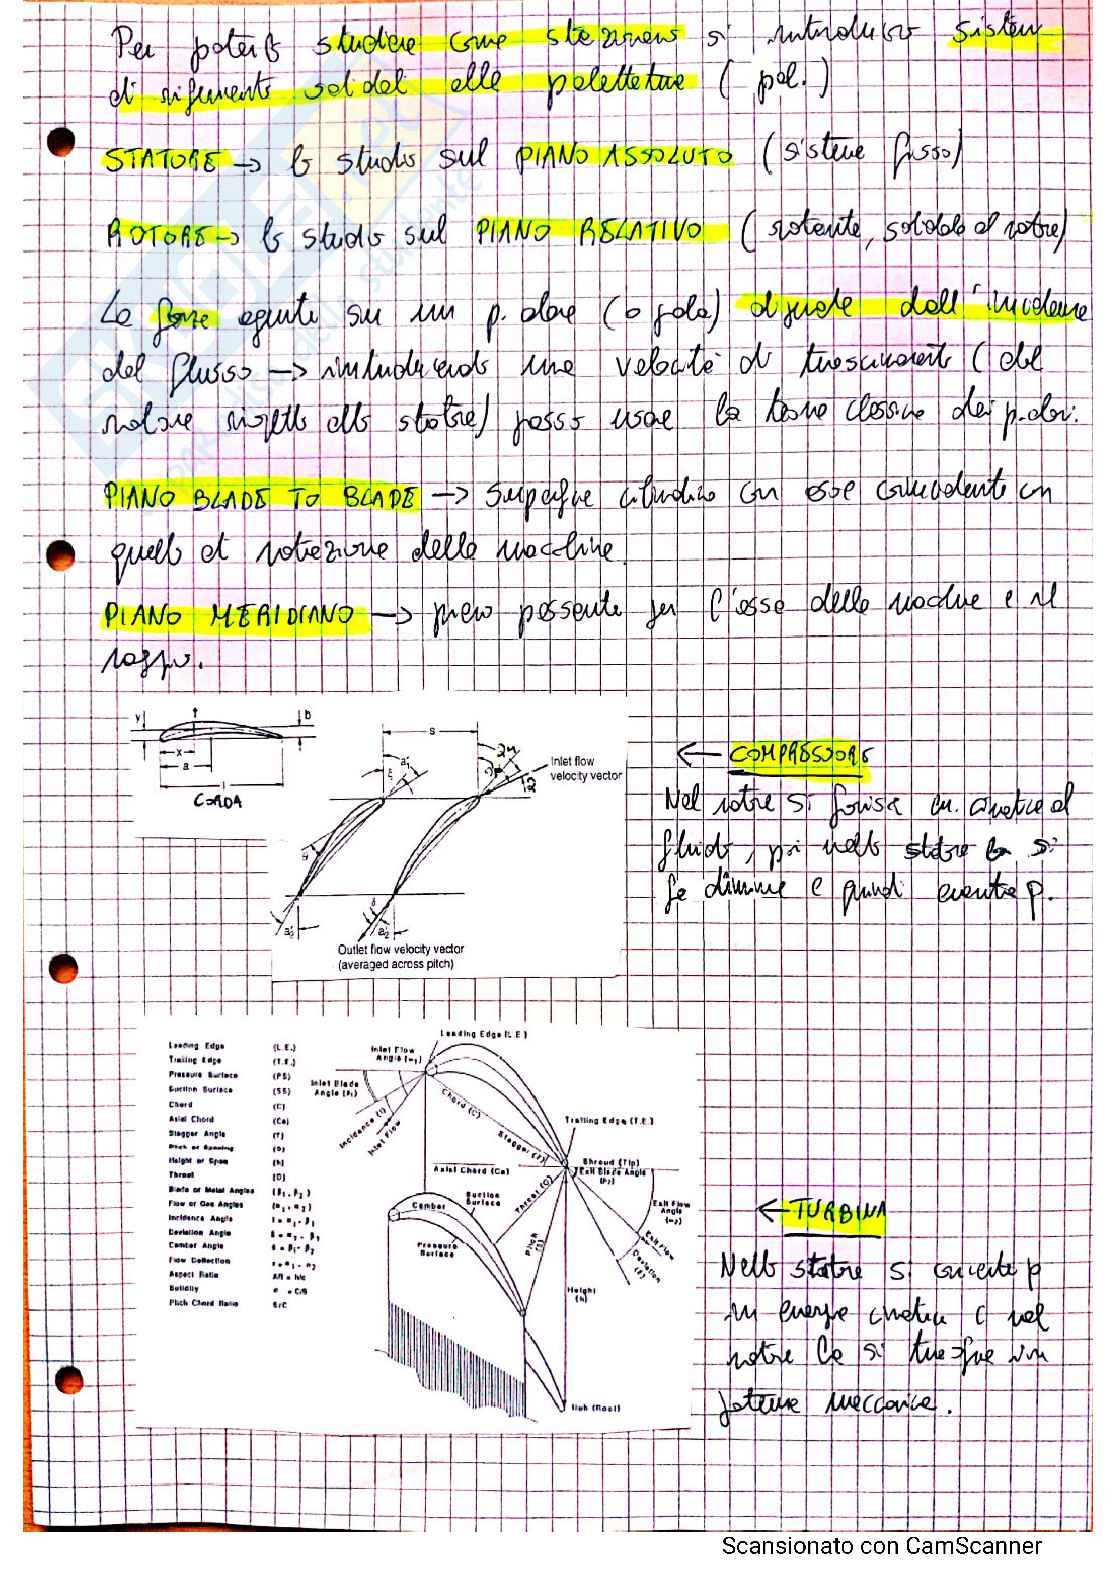 Per poterlo studiare come stazionario si introducono sistemi
di riferimento solidali alle palettature (pal.)
STATORE → lo studio sul PIANO ASSOLUTO (sistema fisso)
ROTORE → lo studio sul PIANO RELATIVO (rotante, solidale al rotore)
La forza agente su un p. alare (o pala) dipende dall'incidenza
del flusso → introducendo una velocità di trascinamento (del
rotore rispetto allo statore) posso usare la teoria classica dei p. alari.
PIANO BLADE TO BLADE → superficie cilindrica con asse coincidente con
quello di rotazione della macchina.
PIANO MERIDIANO → piano passante per l'asse della macchina e il
raggio.
y b
x
a
l
CORDA
s
Inlet flow
velocity vector
Outlet flow velocity vector
(averaged across pitch)
← COMPRESSORE
Nel rotore si fornisce en. cinetica al
fluido, poi nello statore la si
fa diminuire e quindi aumenta p.
Leading Edge (L.E.)
Trailing Edge (T.E.)
Pressure Surface (PS)
Suction Surface (SS)
Chord (C)
Axial Chord (Ca)
Stagger Angle
Pitch or Spacing
Height or Span (h)
Throat (O)
Blade or Metal Angles (β₁, β₂)
Flow or Gas Angles (α₁, α₂)
Incidence Angle
Deviation Angle
Camber Angle
Flow Deflection
Aspect Ratio AR = h/c
Solidity
Pitch Chord Ratio S/C
Leading Edge (L.E.)
Inlet Flow
Angle (α₁)
Inlet Blade
Angle (β₁)
Incidence (i)
Inlet Flow
Chord (C)
Stagger
Trailing Edge (T.E.)
Axial Chord (Ca)
Shroud (Tip)
Exit Blade Angle
(β₂)
Throat (O)
Exit Flow
Angle
(α₂)
Exit Flow
Deviation
Camber
Suction
Surface
Pressure
Surface
Pitch
(S)
Height
(h)
Hub (Root)
← TURBINA
Nello statore si converte p
in energia cinetica e nel
rotore la si trasforma in
potenza meccanica.
Scansionato con CamScanner